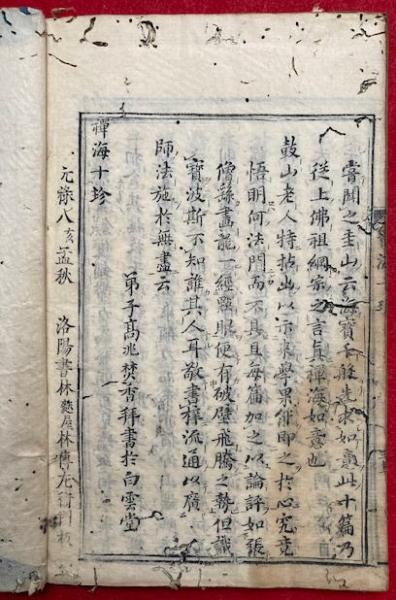 嘗聞之圭山云海寶千般先求如意此十篇乃
從上佛祖綱宗之言真禪海如意也
鼓山老人特拈出以示來學果能即之於心究竟
悟明何法門而不具且每篇加之以論評如張
僧繇畫龍一經點眼便有破壁飛騰之勢但識
寶波斯不知誰其人耳敬書梓流通以廣
師法施於無盡云
弟子高兆焚香拜書於白雲堂
禪海十珍
元祿八亥孟秋
洛陽書林 屋林傳左衛門板